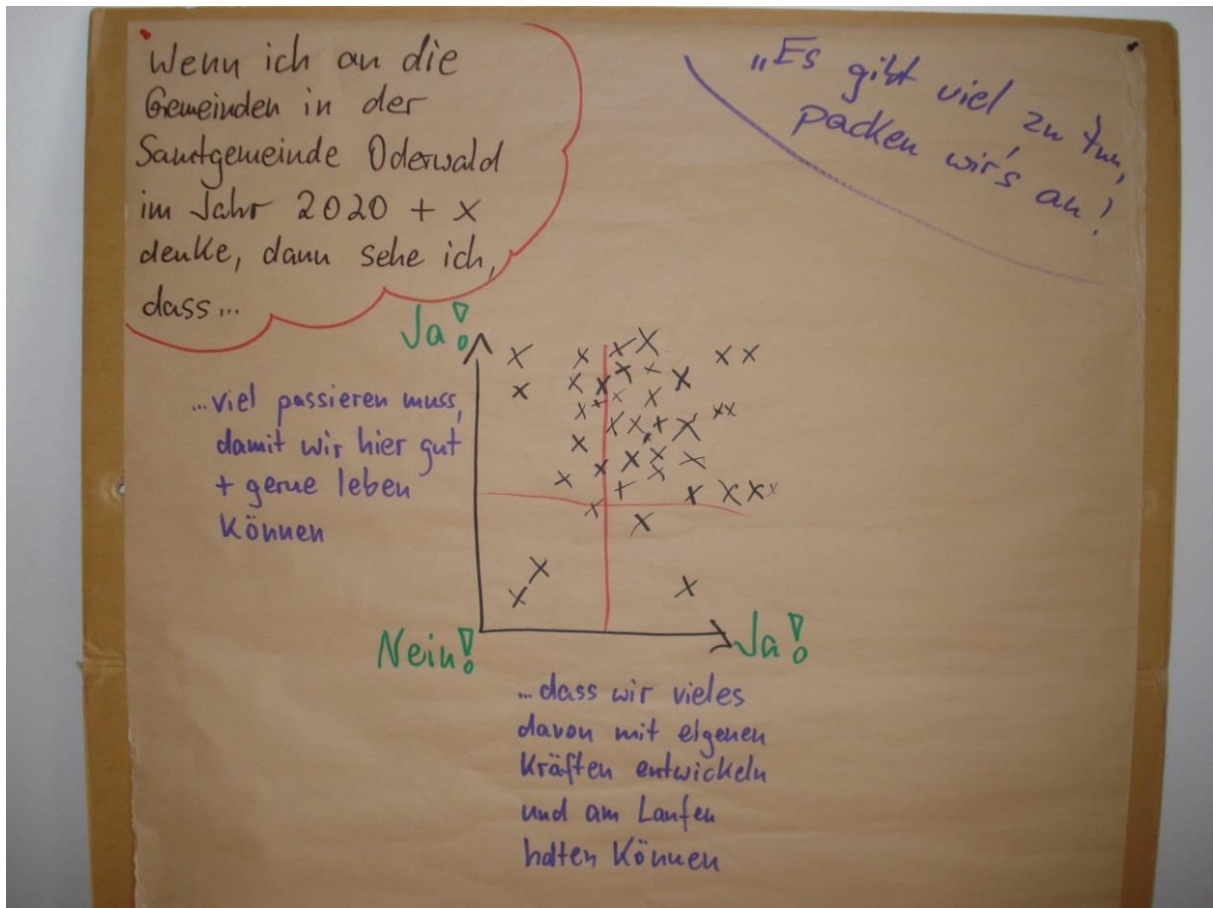 Wenn ich an die
Gemeinden in der
Samtgemeinde Oderwald
im Jahr 2020 + x
denke, dann sehe ich,
dass...
„Es gibt viel zu tun,
packen wir's an!
Ja!
...viel passieren muss,
damit wir hier gut
+ gerne leben
können
Nein!
Ja!
...dass wir vieles
davon mit eigenen
Kräften entwickeln
und am Laufen
halten können